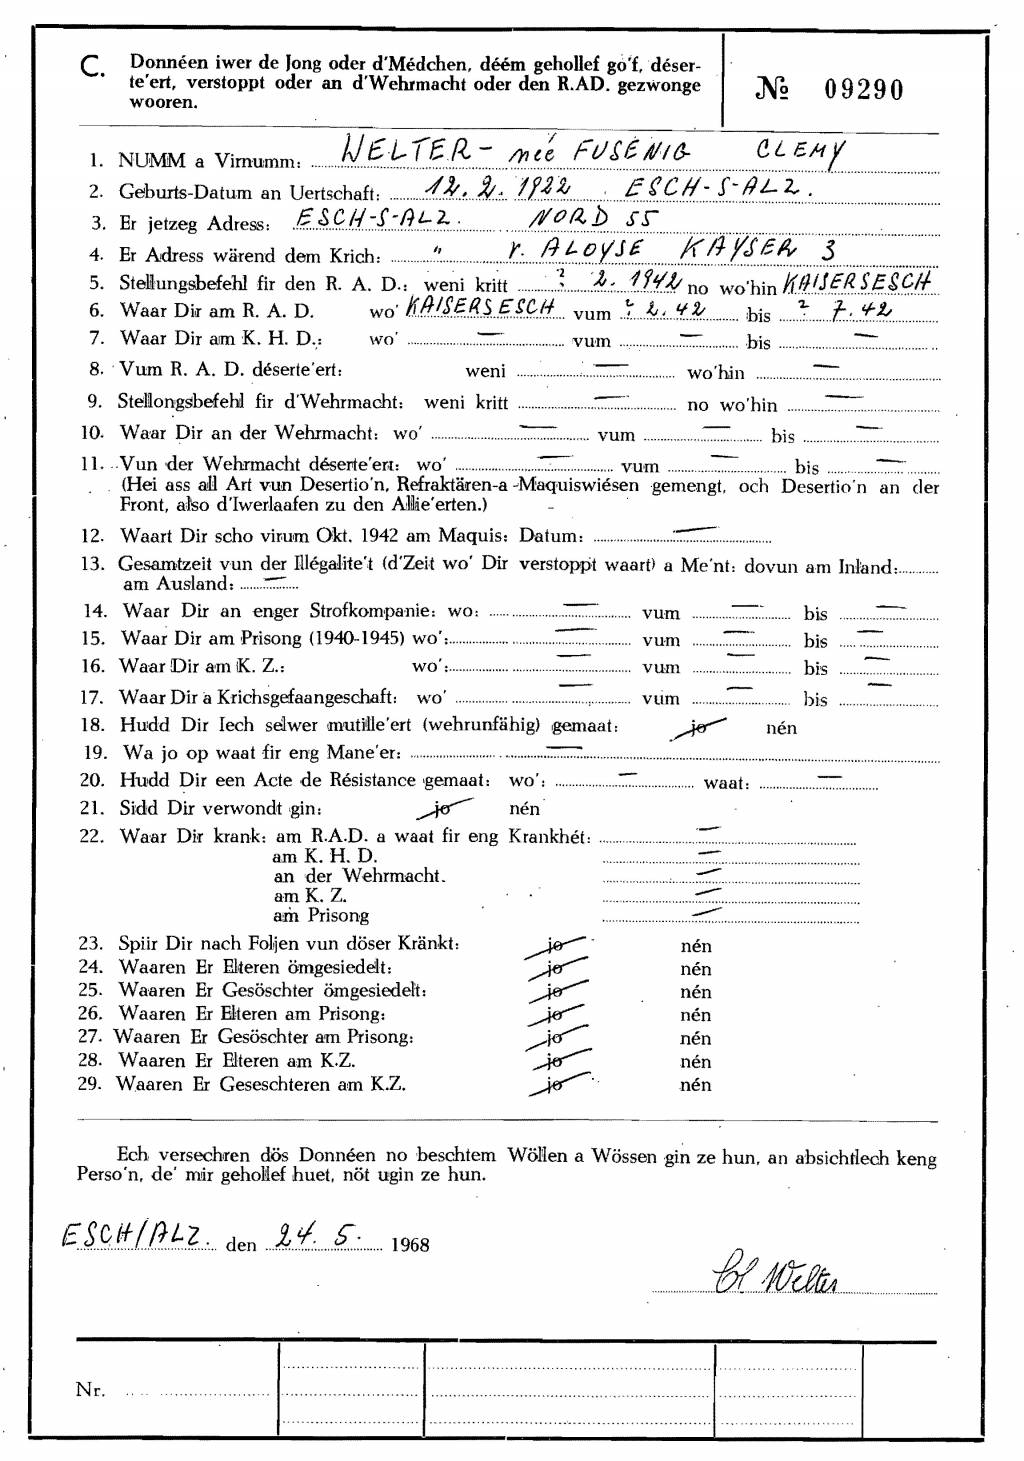 C. Donnéen iwer de Jong oder d'Médchen, déém gehollef go'f, déser-
te'ert, verstoppt oder an d'Wehrmacht oder den R.AD. gezwonge
wooren.
№ 09290
1. NUMM a Virnumm: WELTER - née FUSENIG CLEMY
2. Geburts-Datum an Uertschaft: 12.2.1922 ESCH-S-ALZ.
3. Er jetzeg Adress: ESCH-S-ALZ. NORD 55
4. Er Adress wärend dem Krich: " r. ALOYSE KAYSER 3
5. Stellungsbefehl fir den R. A. D.: weni kritt ? 2. 1942 no wo'hin KAISERSESCH
6. Waar Dir am R. A. D. wo' KAISERSESCH vum ? 2.42 bis ? 7.42
7. Waar Dir am K. H. D.: wo' — vum — bis —
8. Vum R. A. D. déserte'ert: weni — wo'hin —
9. Stellongsbefehl fir d'Wehrmacht: weni kritt — no wo'hin —
10. Waar Dir an der Wehrmacht: wo' — vum — bis —
11. Vun der Wehrmacht déserte'ert: wo' — vum — bis —
(Hei ass all Art vun Desertio'n, Refraktären-a-Maquiswiésen gemengt, och Desertio'n an der
Front, also d'Iwerlaafen zu den Allie'erten.)
12. Waart Dir scho virum Okt. 1942 am Maquis: Datum: —
13. Gesamtzeit vun der Illégalite't (d'Zeit wo' Dir verstoppt waart) a Me'nt: dovun am Inland:
am Ausland: —
14. Waar Dir an enger Strofkompanie: wo: — vum — bis —
15. Waar Dir am Prisong (1940-1945) wo': — vum — bis —
16. Waar Dir am K. Z.: wo': — vum — bis —
17. Waar Dir a Krichsgefaangeschaft: wo' — vum — bis —
18. Hudd Dir Iech selwer mutille'ert (wehrunfähig) gemaat: jo nén
19. Wa jo op waat fir eng Mane'er: —
20. Hudd Dir een Acte de Résistance gemaat: wo': — waat: —
21. Sidd Dir verwondt gin: jo nén
22. Waar Dir krank: am R.A.D. a waat fir eng Krankhét: —
am K. H. D. —
an der Wehrmacht. —
am K. Z. —
am Prisong —
23. Spiir Dir nach Foljen vun döser Kränkt: jo nén
24. Waaren Er Elteren ömgesiedelt: jo nén
25. Waaren Er Gesöschter ömgesiedelt: jo nén
26. Waaren Er Elteren am Prisong: jo nén
27. Waaren Er Gesöschter am Prisong: jo nén
28. Waaren Er Elteren am K.Z. jo nén
29. Waaren Er Geseschteren am K.Z. jo nén
Ech versechren dös Donnéen no beschtem Wöllen a Wössen gin ze hun, an absichtlech keng
Perso'n, de' mir gehollef huet, nöt ugin ze hun.
ESCH/ALZ. den 24. 5. 1968
Cl Welter
Nr.